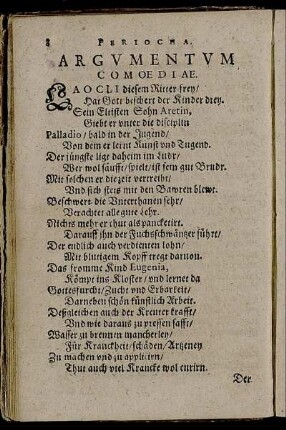 8 PERIOCHA.
ARGVMENTVM
COMOEDIAE.
LAOCLI diesem Ritter frey/
Hat Gott beschert der Kinder drey.
Sein Eltsten Sohn Aretin,
Giebt er vnter die disciplin
Palladio/ bald in der Jugend/
Von dem er lernt Kunst vnd Tugend.
Der jüngste ligt daheim im Luder/
Wer wol saufft/spielt/ist sein gut Brudr.
Mit solchen er die zeit vertreibt/
Vnd sich stets mit den Bawren
Beschwert die Vnterthanen sehr/
Verachtet alle gute Lehr.
Nichts mehr er thut als pancketirt.
Darauff jhn der Fuchsschwäntzer führt/
Der endlich auch verdienten lohn/
Mit blutigem Kopff tregt daruon.
Das fromme Kind Eugenia,
Kömpt ins Kloster/ vnd lernet da
Gottesfurcht/ Zucht vnd Erbarkeit/
Darneben schön künstlich Arbeit.
Desgleichen auch der Kreuter krafft/
Vnd wie daraus zu pressen safft/
Wasser zu brennen mancherley/
Für Kranckheit/schäden/ Artzeney
Zu machen vnd zu applicirn/
Thut auch viel Krancke wol curirn.
Der